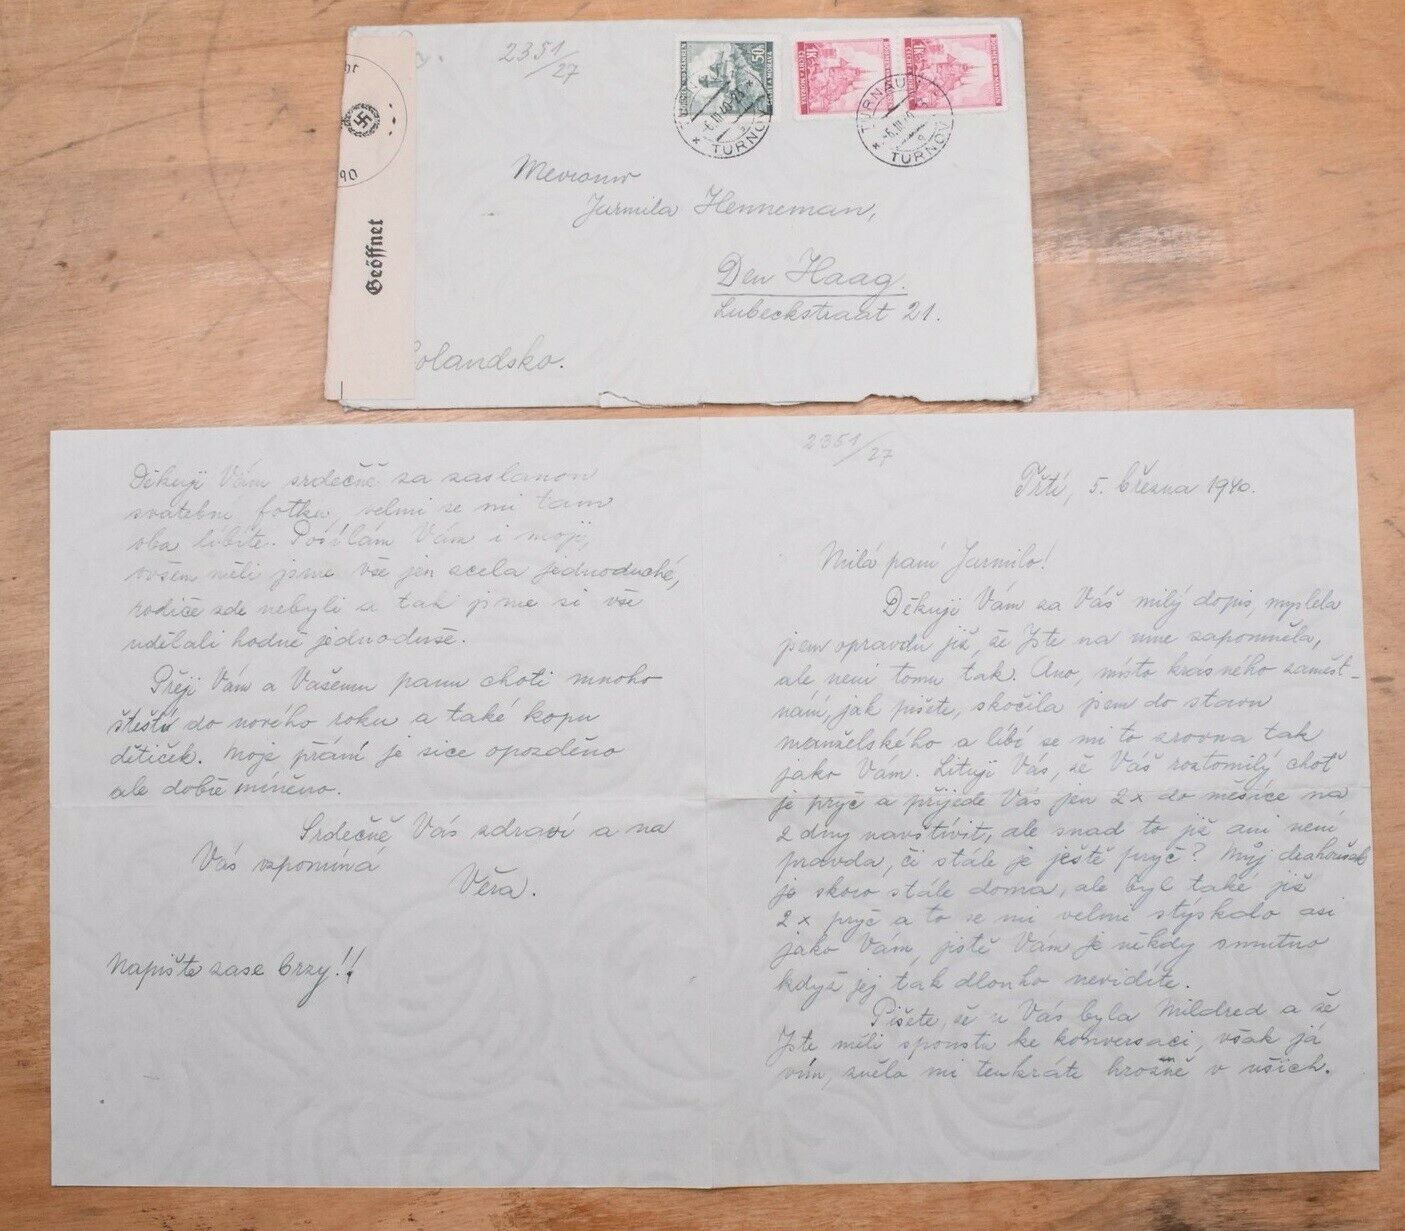 2351/27
Geöffnet
TURNAU
TURNOV
TURNOV
BÖHMEN UND MÄHREN
ČECHY A MORAVA
Mevrouw
Jarmila Henneman,
Den Haag.
Lubeckstraat 21.
olandsko.
2351/27
Trtí, 5. března 1940.
Milá paní Jarmilo!
Děkuji Vám za Váš milý dopis, myslela
jsem opravdu již, že Jste na mne zapomněla,
ale není tomu tak. Ano, místo krásného zaměst-
nám, jak píšete, skočila jsem do stavu
manželského a líbí se mi to zrovna tak
jako Vám. Lituji Vás, že Váš roztomilý choť
je pryč a přijede Vás jen 2x do měsíce na
2 dny navštívit, ale snad to již ani není
pravda, či stále je ještě pryč? Můj drahoušek
je skoro stále doma, ale byl také již
2x pryč a to se mi velmi stýskalo asi
jako Vám, jistě Vám je někdy smutno
když jej tak dlouho nevidíte.
Píšete, že u Vás byla Mildred a že
Jste měli spoustu ke konversaci, však já
vím, zněla mi tenkráte hrozně v uších.
Děkuji Vám srdečně za zaslanou
svatební fotku, velmi se mi tam
oba líbíte. Posílám Vám i moji,
ovšem měli jsme vše jen zcela jednoduché,
rodiče zde nebyli a tak jsme si vše
udělali hodně jednoduše.
Přeji Vám a Vašemu panu choti mnoho
štěstí do nového roku a také kopu
dětiček. Moje přání je sice opozděno
ale dobře míněno.
Srdečně Vás zdraví a na
Vás vzpomíná
Věra.
Napište zase brzy!!